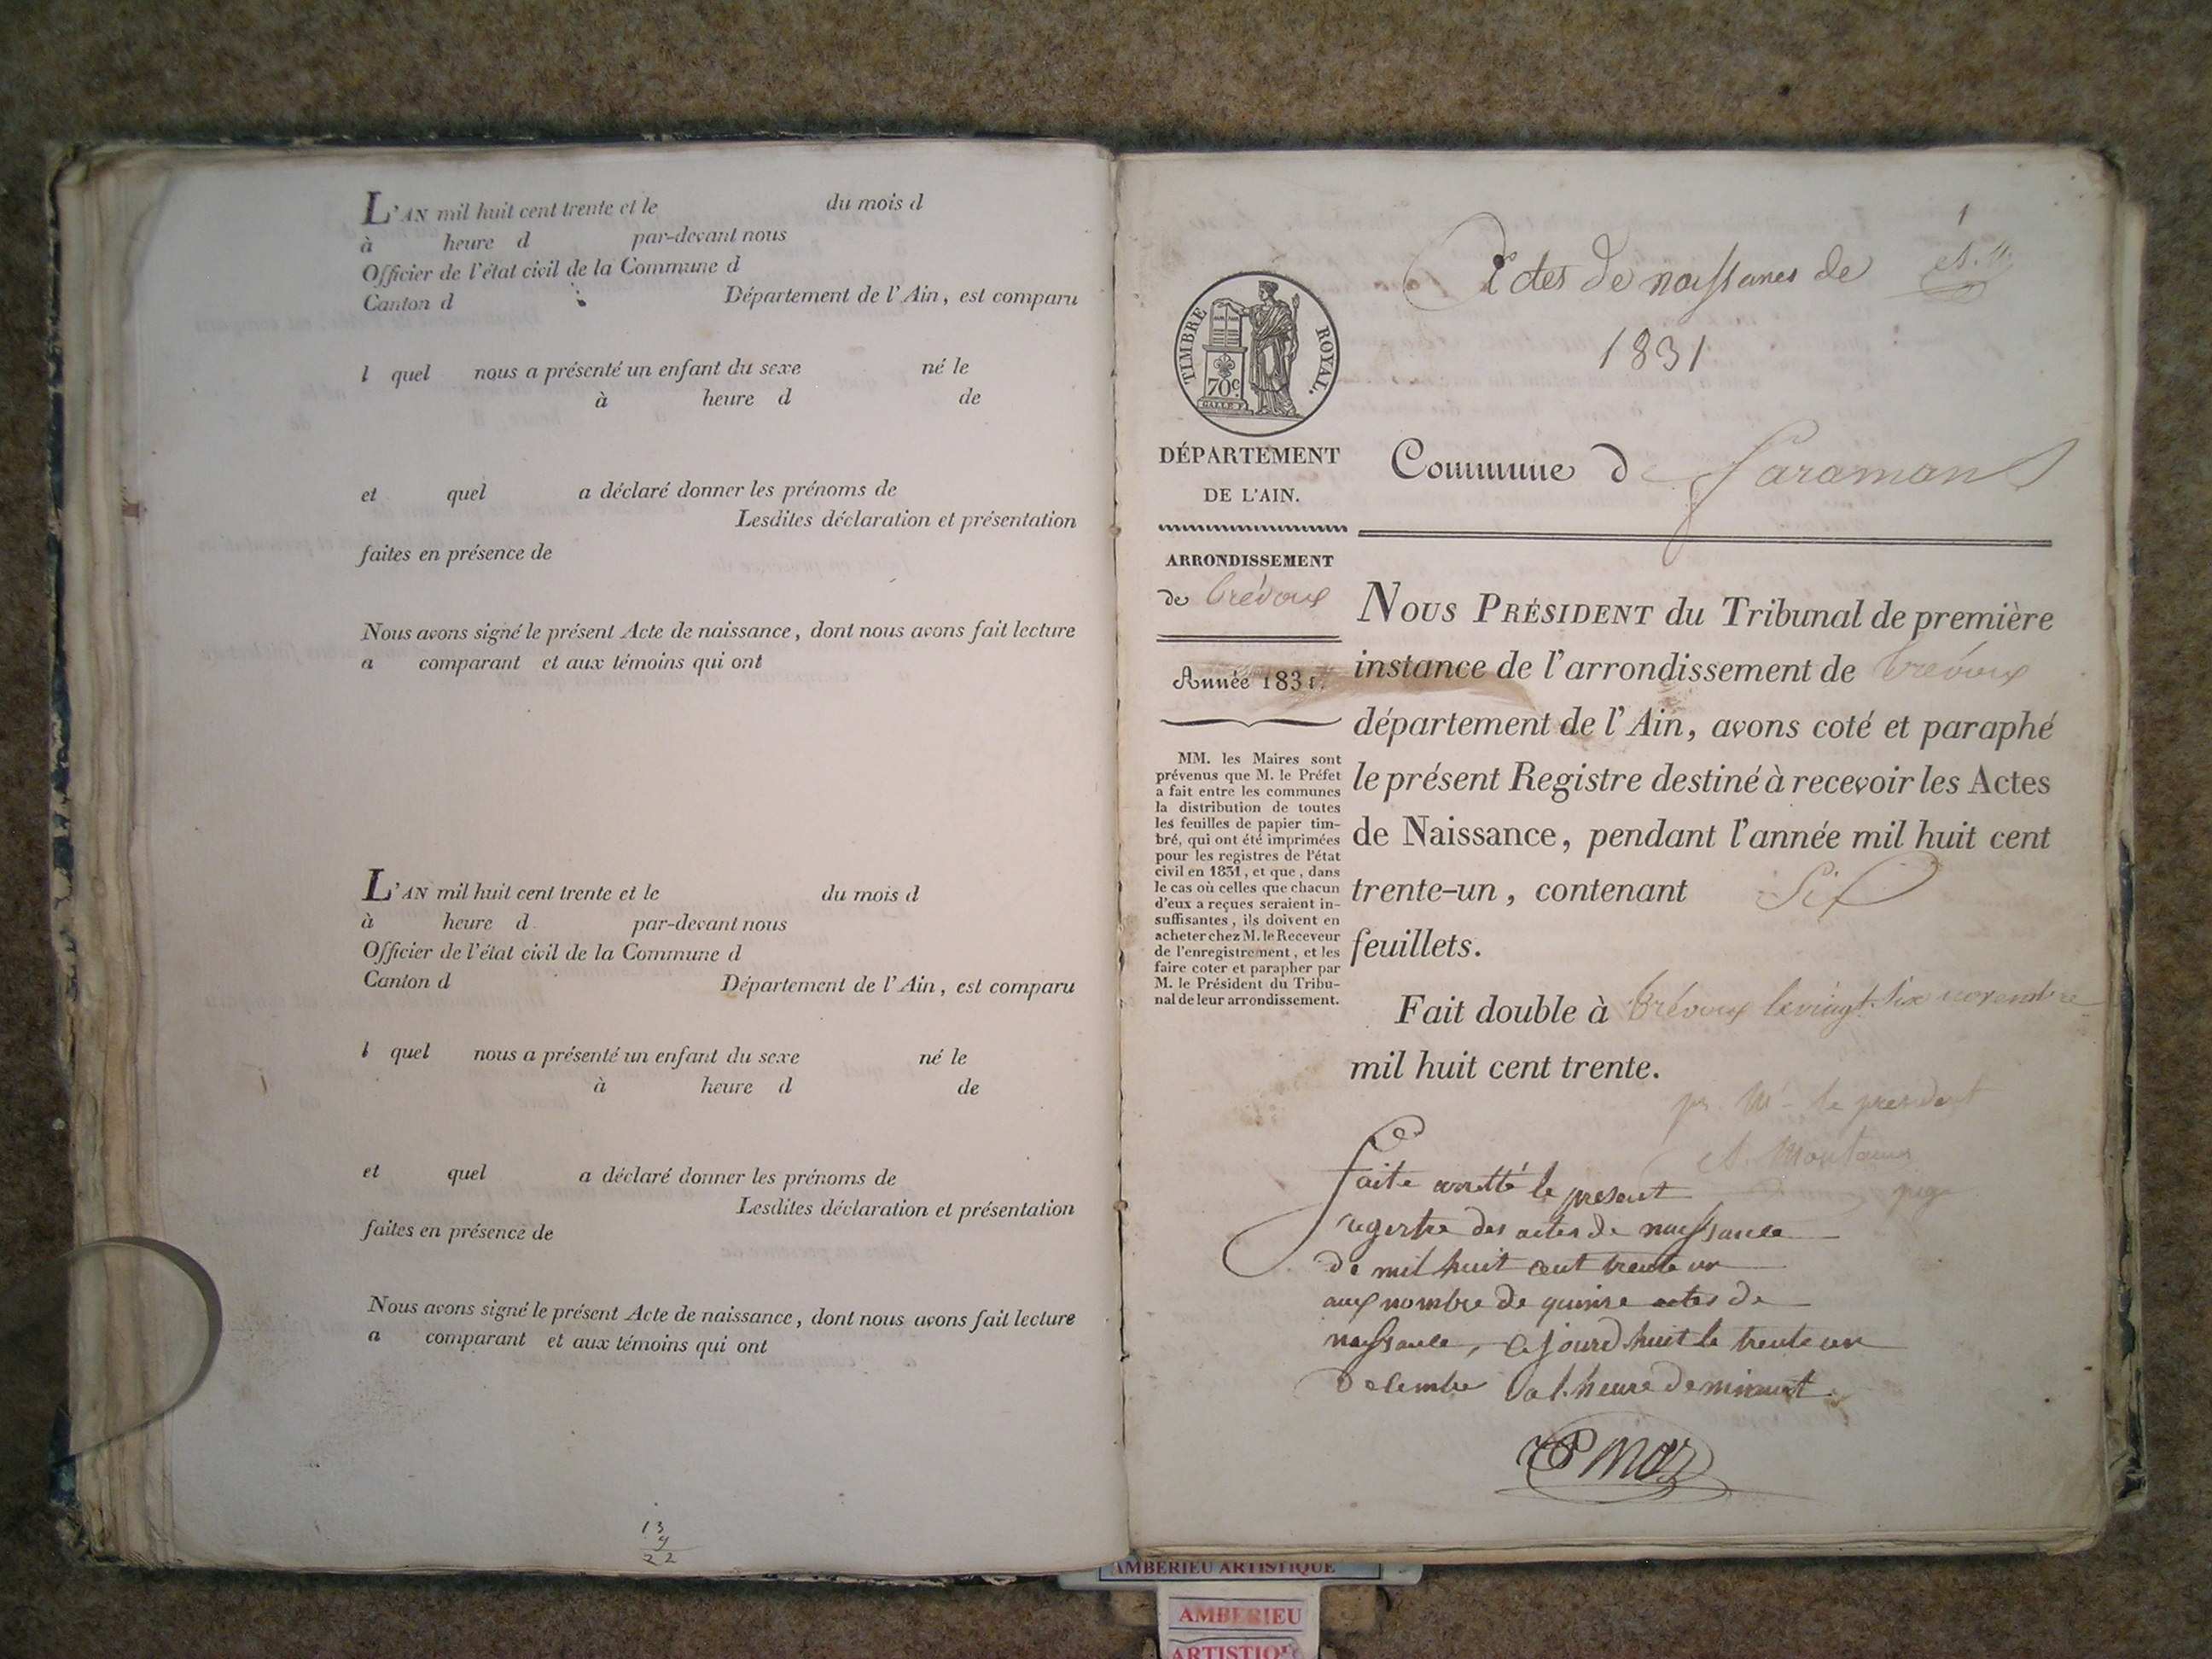 L'AN mil huit cent trente et le du mois d
à heure d par-devant nous
Officier de l'état civil de la Commune d
Canton d Département de l'Ain, est comparu
l quel nous a présenté un enfant du sexe né le
à heure d de
et quel a déclaré donner les prénoms de
Lesdites déclaration et présentation
faites en présence de
Nous avons signé le présent Acte de naissance, dont nous avons fait lecture
a comparant et aux témoins qui ont
L'AN mil huit cent trente et le du mois d
à heure d par-devant nous
Officier de l'état civil de la Commune d
Canton d Département de l'Ain, est comparu
l quel nous a présenté un enfant du sexe né le
à heure d de
et quel a déclaré donner les prénoms de
Lesdites déclaration et présentation
faites en présence de
Nous avons signé le présent Acte de naissance, dont nous avons fait lecture
a comparant et aux témoins qui ont
13
9
22
1
Actes de naissances de
1831
TIMBRE ROYAL.
70c
DÉPARTEMENT
DE L'AIN.
ARRONDISSEMENT
de Trévoux
Année 1831.
MM. les Maires sont
prévenus que M. le Préfet
a fait entre les communes
la distribution de toutes
les feuilles de papier tim-
bré, qui ont été imprimées
pour les registres de l'état
civil en 1831, et que, dans
le cas où celles que chacun
d'eux a reçues seraient in-
suffisantes, ils doivent en
acheter chez M. le Receveur
de l'enregistrement, et les
faire coter et parapher par
M. le Président du Tribu-
nal de leur arrondissement.
Commune de faramans
NOUS PRÉSIDENT du Tribunal de première
instance de l'arrondissement de Trévoux
département de l'Ain, avons coté et paraphé
le présent Registre destiné à recevoir les Actes
de Naissance, pendant l'année mil huit cent
trente-un, contenant Six
feuillets.
Fait double à Trévoux le vingt-six novembre
mil huit cent trente.
pr. Mr le president
faite arretté le present
regertre des actes de naissance
de mil huit cent trente un
aux nombre de quinse actes de
naissance, cejourd'huit le trente un
decembre a l'heure de minuit
AMBERIEU ARTISTIQUE
AMBERIEU
ARTISTIQUE